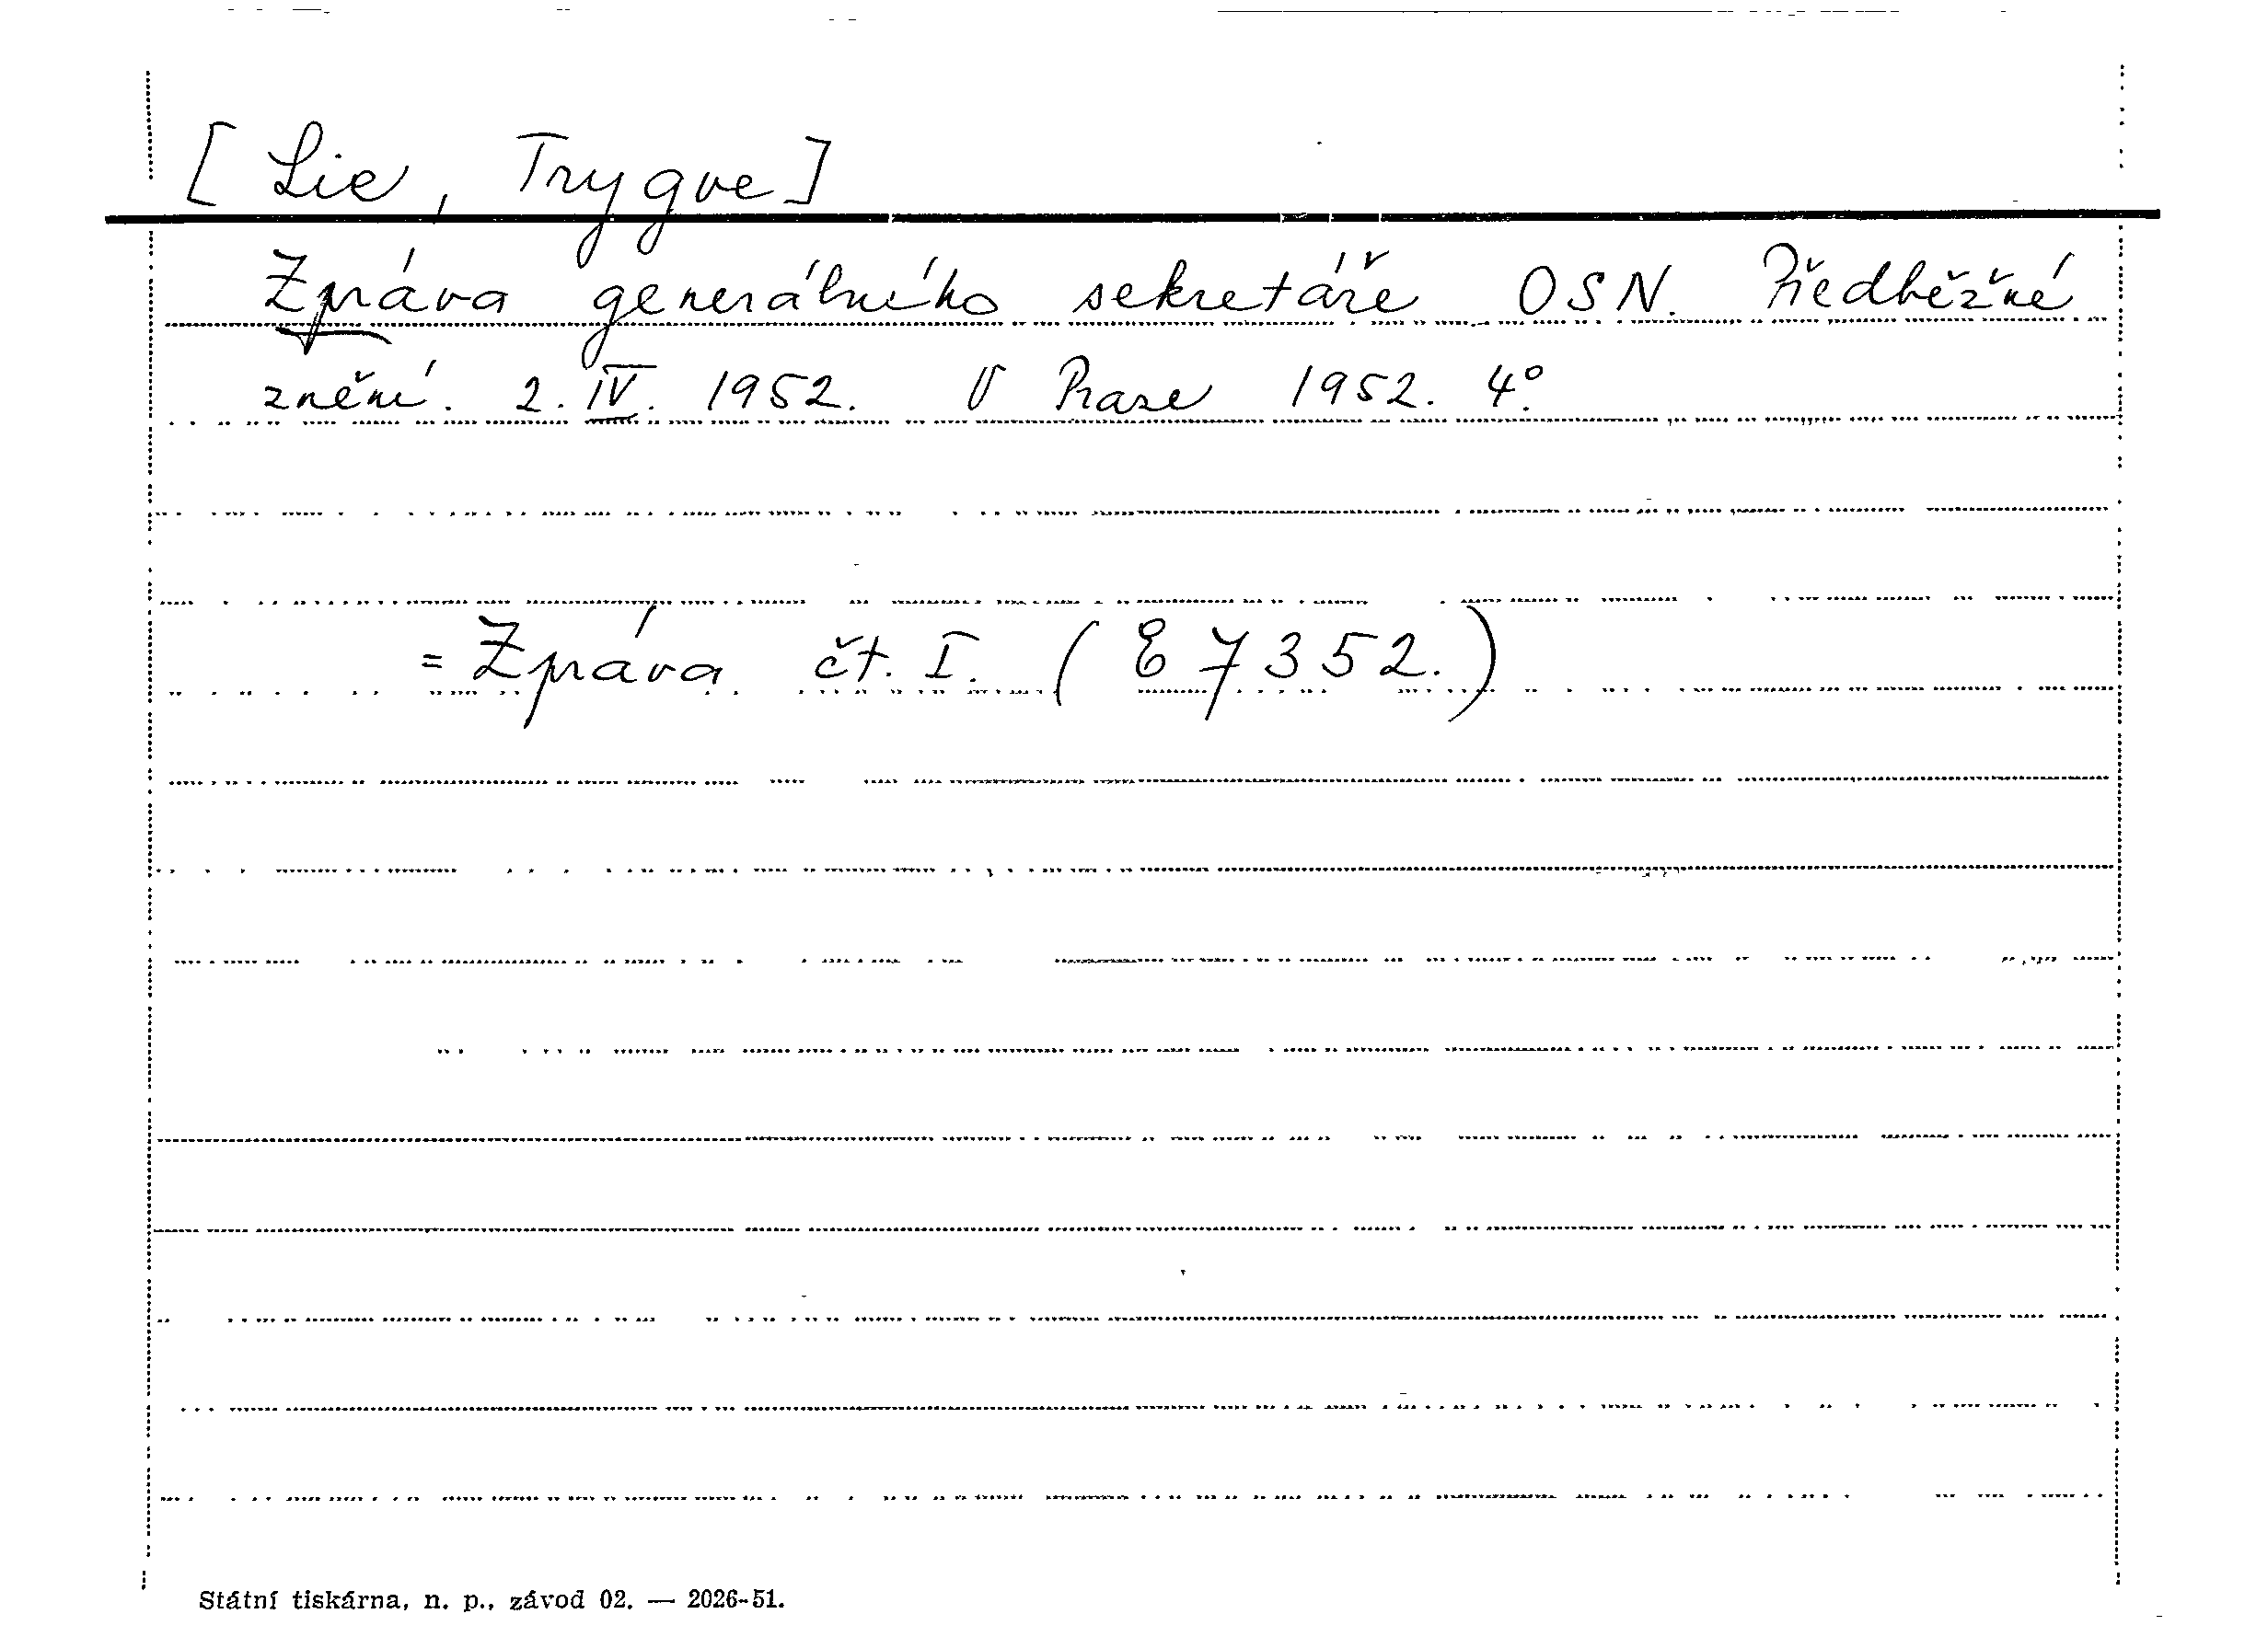 [Lie, Trygve]
Zpráva generálního sekretáře OSN. Předběžné
znění. 2. IV. 1952. V Praze 1952. 4°.
= Zpráva čt. I. (E 7352.)
Státní tiskárna, n. p., závod 02. — 2026-51.